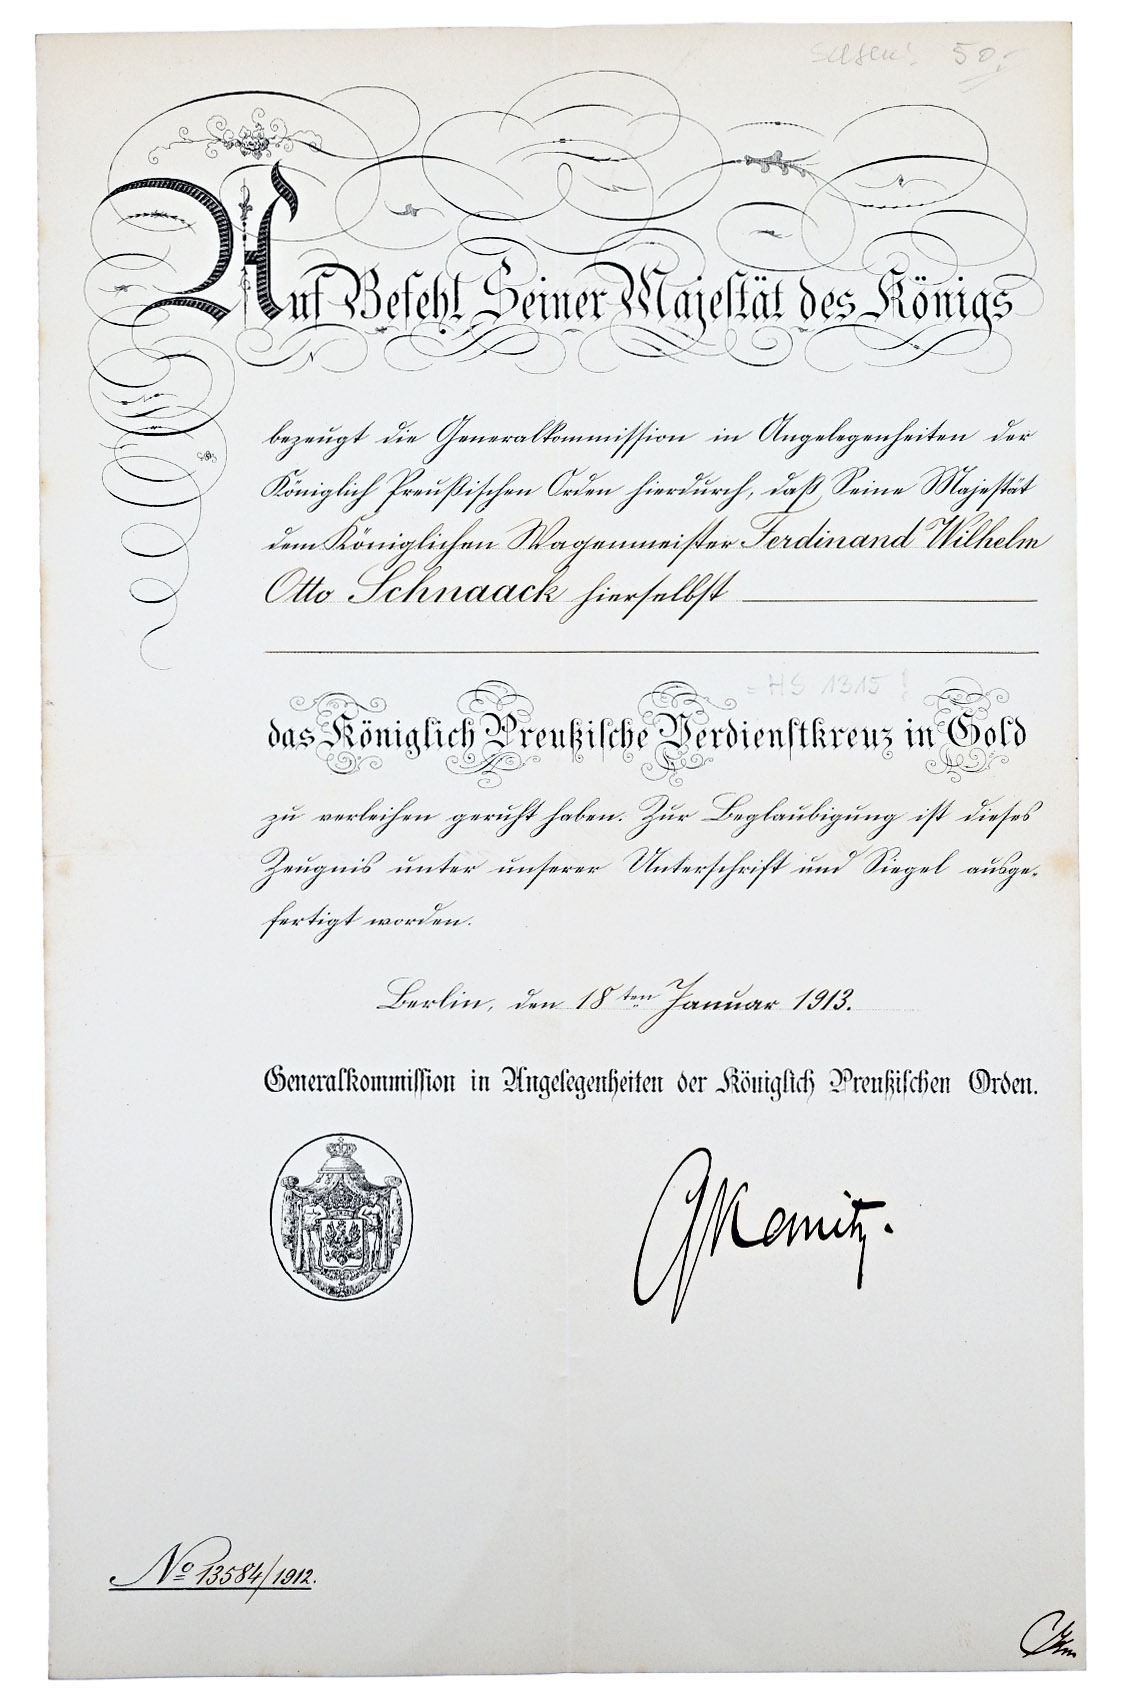 50.-
Auf Befehl Seiner Majestät des Königs
bezeugt die Generalkommission in Angelegenheiten der
Königlich Preußischen Orden hierdurch, daß Seine Majestät
dem Königlichen Wagenmeister Ferdinand Wilhelm
Otto Schnaack hierselbst
= HS 1315 !
das Königlich Preußische Verdienstkreuz in Gold
zu verleihen geruht haben. Zur Beglaubigung ist dieses
Zeugnis unter unserer Unterschrift und Siegel ausge-
fertigt worden.
Berlin, den 18ten Januar 1913.
Generalkommission in Angelegenheiten der Königlich Preußischen Orden.
No 13584/1912.